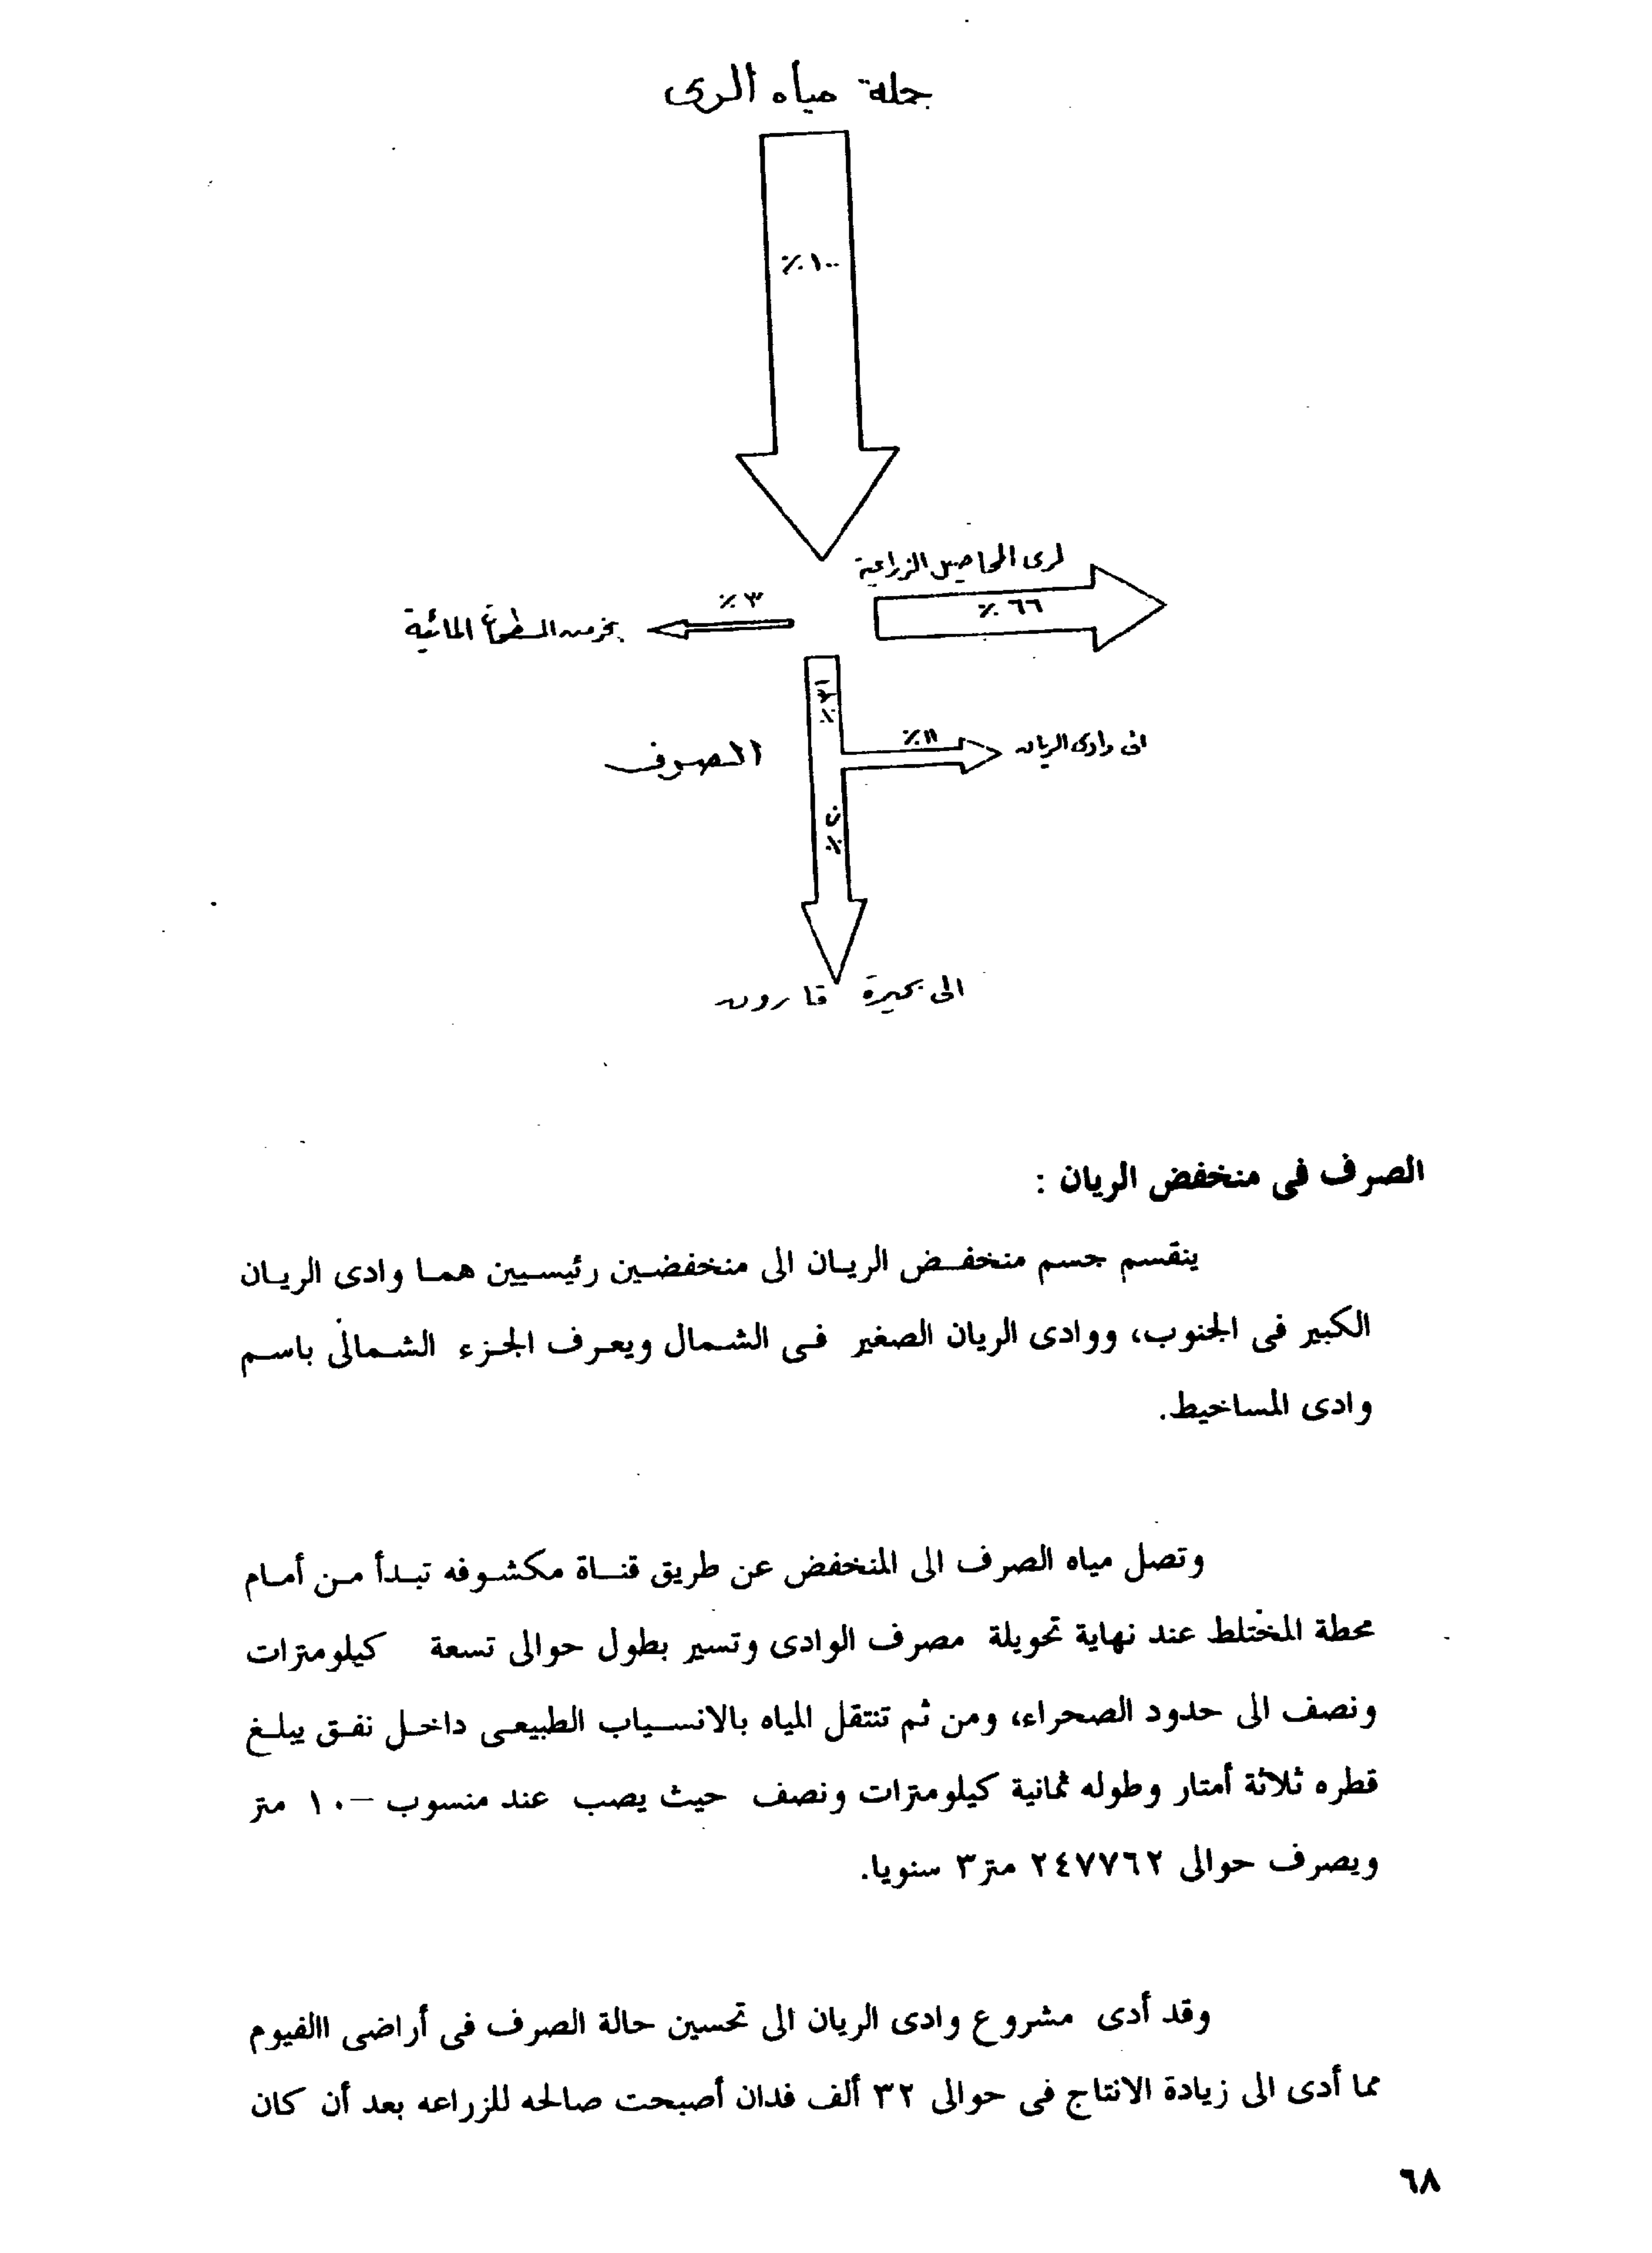 جملة مياه الرى
٪١٠٠
لرى المحاصيل الزراعية
٪٦٦
٪٣
بخر من المسطحات المائية
٪٣١
٪١١
الى وادى الريان
الصرف
٪٢٠
الى بحيرة قارون
الصرف فى منخفض الريان :
ينقسم جسم منخفض الريان الى منخفضين رئيسيين هما وادى الريان
الكبير فى الجنوب، ووادى الريان الصغير فى الشمال ويعرف الجزء الشمالى باسم
وادى المساخيط.
وتصل مياه الصرف الى المنخفض عن طريق قناة مكشوفه تبدأ من أمام
محطة المختلط عند نهاية تحويلة مصرف الوادى وتسير بطول حوالى تسعة كيلومترات
ونصف الى حدود الصحراء، ومن ثم تنتقل المياه بالانسياب الطبيعى داخل نفق يبلغ
قطره ثلاثة أمتار وطوله ثمانية كيلومترات ونصف حيث يصب عند منسوب –١٠ متر
ويصرف حوالى ٢٤٧٧٦٢ متر٣ سنويا.
وقد أدى مشروع وادى الريان الى تحسين حالة الصرف فى أراضى االفيوم
مما أدى الى زيادة الانتاج فى حوالى ٣٢ ألف فدان أصبحت صالحه للزراعه بعد أن كان
٦٨